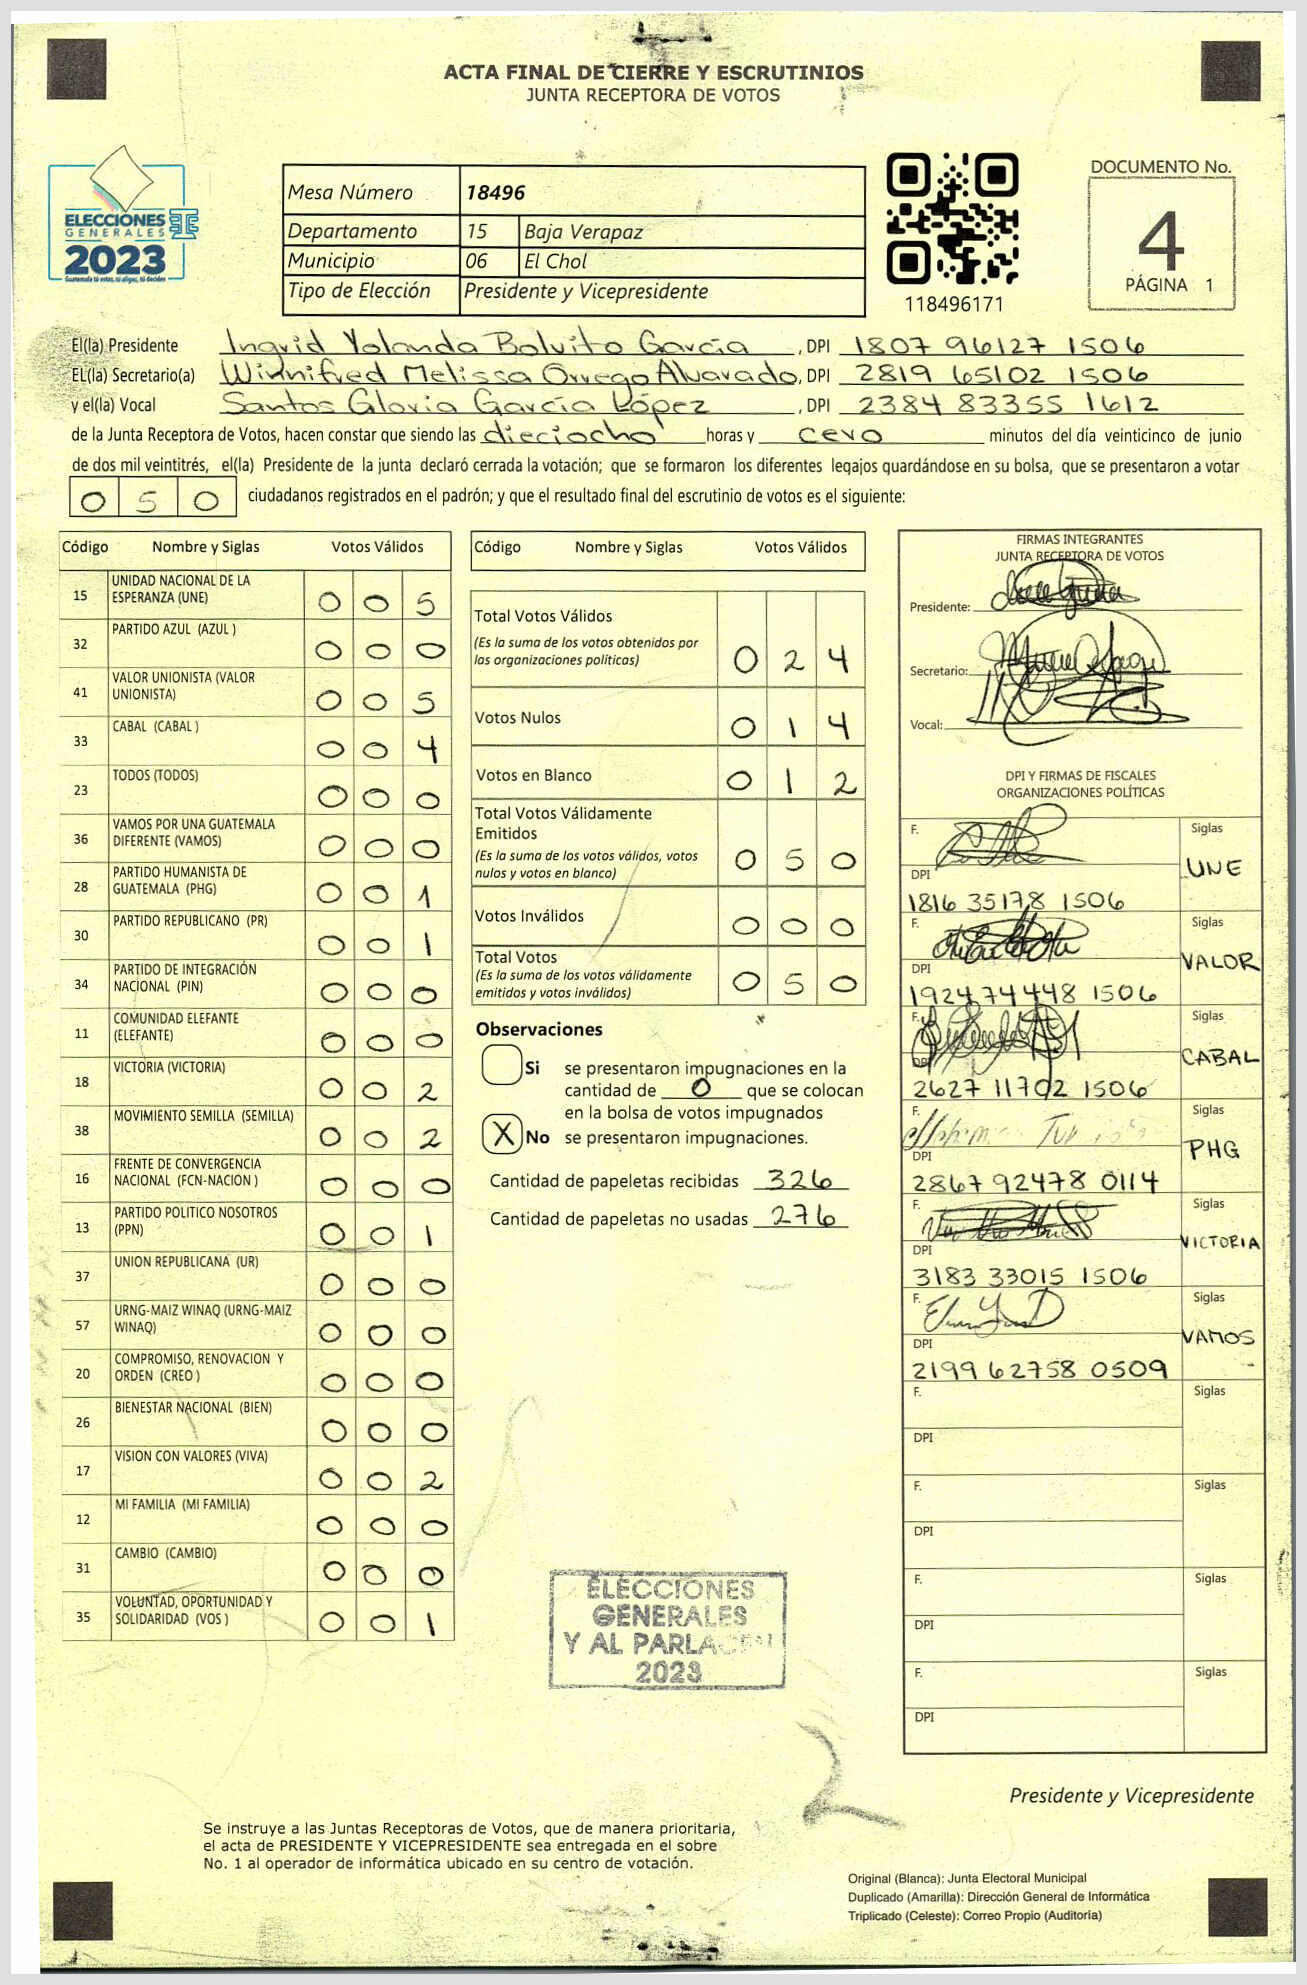 ACTA FINAL DE CIERRE Y ESCRUTINIOS
JUNTA RECEPTORA DE VOTOS
ELECCIONES
GENERALES
2023
Guatemala tú votas, tú eliges, tú decides
Mesa Número 18496
Departamento 15 Baja Verapaz
Municipio 06 El Chol
Tipo de Elección Presidente y Vicepresidente
118496171
DOCUMENTO No.
4
PÁGINA 1
El(la) Presidente Ingrid Yolanda Bolvito García, DPI 1807 96127 1506
EL(la) Secretario(a) Winnifred Melissa Orrego Alvarado, DPI 2819 65102 1506
y el(la) Vocal Santos Gloria García López, DPI 2384 83355 1612
de la Junta Receptora de Votos, hacen constar que siendo las dieciocho horas y cero minutos del día veinticinco de junio
de dos mil veintitrés, el(la) Presidente de la junta declaró cerrada la votación; que se formaron los diferentes legajos guardándose en su bolsa, que se presentaron a votar
0 5 0 ciudadanos registrados en el padrón; y que el resultado final del escrutinio de votos es el siguiente:
Código Nombre y Siglas Votos Válidos
15 UNIDAD NACIONAL DE LA ESPERANZA (UNE) 0 0 5
32 PARTIDO AZUL (AZUL ) 0 0 0
41 VALOR UNIONISTA (VALOR UNIONISTA) 0 0 5
33 CABAL (CABAL ) 0 0 4
23 TODOS (TODOS) 0 0 0
36 VAMOS POR UNA GUATEMALA DIFERENTE (VAMOS) 0 0 0
28 PARTIDO HUMANISTA DE GUATEMALA (PHG) 0 0 1
30 PARTIDO REPUBLICANO (PR) 0 0 1
34 PARTIDO DE INTEGRACIÓN NACIONAL (PIN) 0 0 0
11 COMUNIDAD ELEFANTE (ELEFANTE) 0 0 0
18 VICTORIA (VICTORIA) 0 0 2
38 MOVIMIENTO SEMILLA (SEMILLA) 0 0 2
16 FRENTE DE CONVERGENCIA NACIONAL (FCN-NACION ) 0 0 0
13 PARTIDO POLITICO NOSOTROS (PPN) 0 0 1
37 UNION REPUBLICANA (UR) 0 0 0
57 URNG-MAIZ WINAQ (URNG-MAIZ WINAQ) 0 0 0
20 COMPROMISO, RENOVACION Y ORDEN (CREO ) 0 0 0
26 BIENESTAR NACIONAL (BIEN) 0 0 0
17 VISION CON VALORES (VIVA) 0 0 2
12 MI FAMILIA (MI FAMILIA) 0 0 0
31 CAMBIO (CAMBIO) 0 0 0
35 VOLUNTAD, OPORTUNIDAD Y SOLIDARIDAD (VOS ) 0 0 1
Código Nombre y Siglas Votos Válidos
Total Votos Válidos
(Es la suma de los votos obtenidos por
las organizaciones políticas) 0 2 4
Votos Nulos 0 1 4
Votos en Blanco 0 1 2
Total Votos Válidamente
Emitidos
(Es la suma de los votos válidos, votos
nulos y votos en blanco) 0 5 0
Votos Inválidos 0 0 0
Total Votos
(Es la suma de los votos válidamente
emitidos y votos inválidos) 0 5 0
Observaciones
Si se presentaron impugnaciones en la
cantidad de 0 que se colocan
en la bolsa de votos impugnados
X No se presentaron impugnaciones.
Cantidad de papeletas recibidas 326
Cantidad de papeletas no usadas 276
FIRMAS INTEGRANTES
JUNTA RECEPTORA DE VOTOS
Presidente:
Secretario:
Vocal:
DPI Y FIRMAS DE FISCALES
ORGANIZACIONES POLÍTICAS
F. Siglas
UNE
DPI
1816 35178 1506
F. Siglas
VALOR
DPI
1924 74448 1506
F. Siglas
CABAL
DPI
2627 11702 1506
F. Siglas
PHG
DPI
2867 92478 0114
F. Siglas
VICTORIA
DPI
3183 33015 1506
F. Siglas
VAMOS
DPI
2199 62758 0509
F. Siglas
DPI
F. Siglas
DPI
F. Siglas
DPI
F. Siglas
DPI
ELECCIONES
GENERALES
Y AL PARLACEN
2023
2
Presidente y Vicepresidente
Se instruye a las Juntas Receptoras de Votos, que de manera prioritaria,
el acta de PRESIDENTE Y VICEPRESIDENTE sea entregada en el sobre
No. 1 al operador de informática ubicado en su centro de votación.
Original (Blanca): Junta Electoral Municipal
Duplicado (Amarilla): Dirección General de Informática
Triplicado (Celeste): Correo Propio (Auditoría)